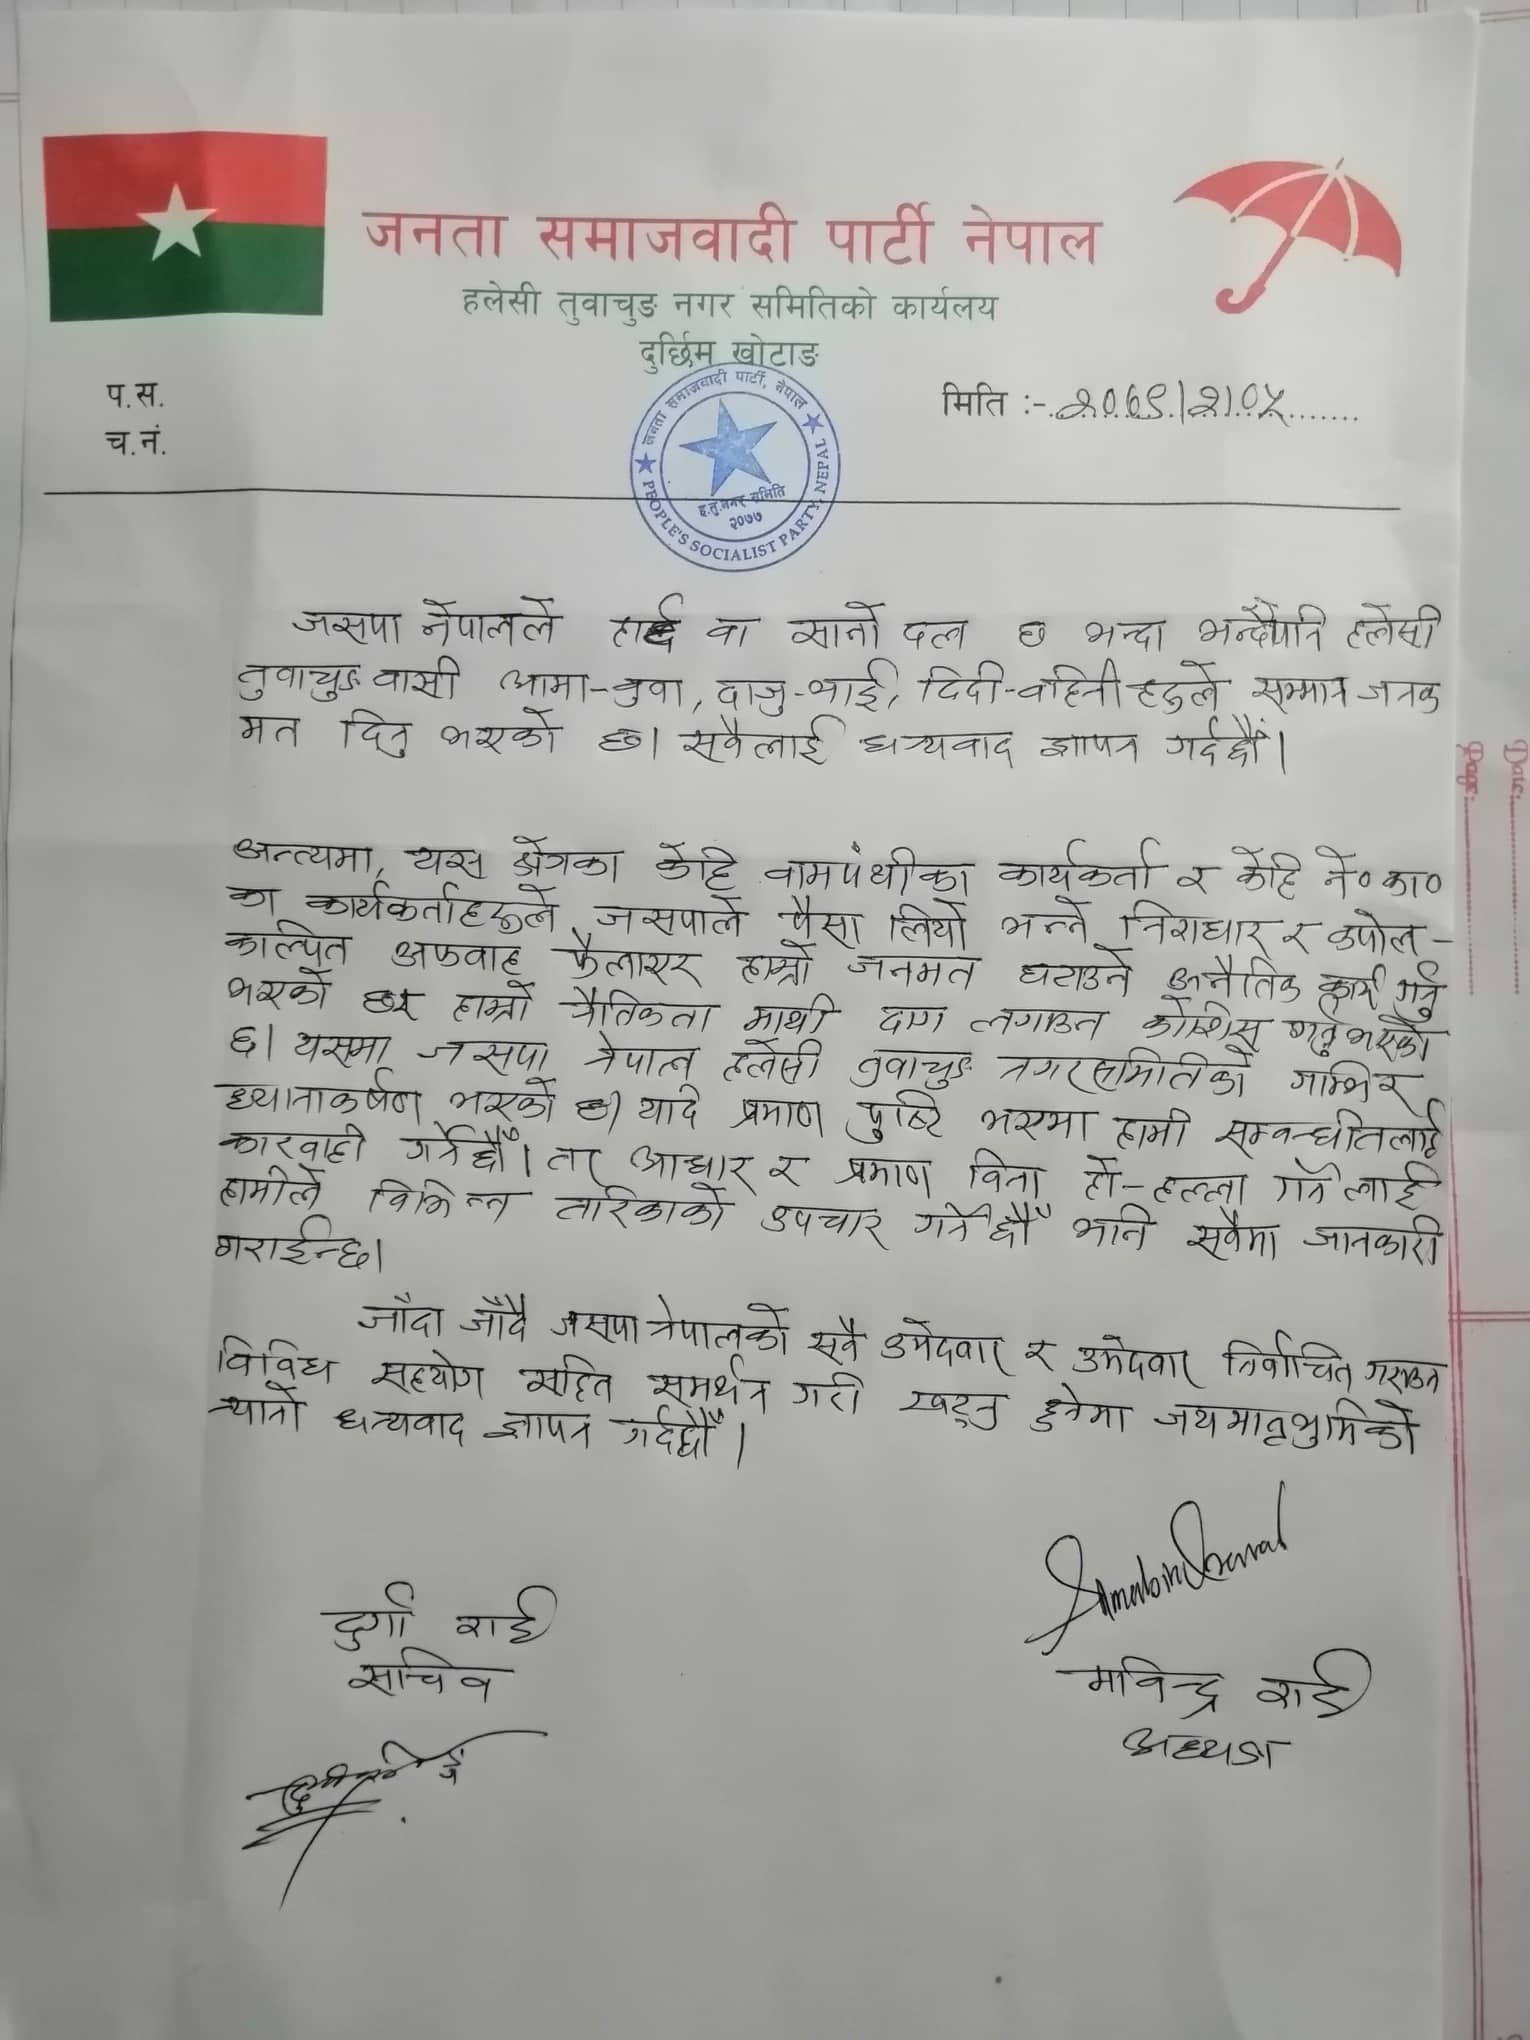 जनता समाजवादी पार्टी नेपाल
हलेसी तुवाचुङ नगर समितिको कार्यलय
दुर्छिम खोटाङ
प.स.
च.नं.
मिति :- २०७९।२।०५
जनता समाजवादी पार्टी, नेपाल
ह.तु.नगर समिति
२०७७
PEOPLE'S SOCIALIST PARTY, NEPAL
जसपा नेपालले वा सानो दल छ भन्दा भन्दैपनि हलेसी
तुवाचुङवासी आमा-बुवा, दाजु-भाई, दिदी-वहिनीहरुले सम्मान जनक
मत दिनु भएको छ। सवैलाई धन्यवाद ज्ञापन गर्दछौं।
अन्त्यमा, यस क्षेत्रका केहि वामपंथीका कार्यकर्ता र केहि ने० का०
का कार्यकर्ताहरूले जसपाले पैसा लियो भन्ने निराधार र कपोल-
काल्पित अफवाह फैलाएर हाम्रो जनमत घटाउने अनैतिक कार्य गर्नु
भएको छ र हाम्रो नैतिकता माथी दाग लगाउन कोशिस गर्नुभएको
छ। यसमा जसपा नेपाल हलेसी तुवाचुङ नगरसमितिको गाम्भिर
ध्यानाकर्षण भएको छ। यदि प्रमाण पुष्टि भएमा हामी सम्वन्धीतलाई
कारवाही गर्नेछौँ। तर आधार र प्रमाण विना हो-हल्ला गर्ने लाई
हामीले विभिन्न तरिकाको उपचार गर्नेछौँ भनि सवैमा जानकारी
गराईन्छ।
जाँदा जाँदै जसपा नेपालको सवै उमेदवार र उमेदवार निर्वाचित गराउन
विविध सहयोग सहित समर्थन गरी खट्नु हुनेमा जयमातृभुमिको
न्यानो धन्यवाद ज्ञापन गर्दछौँ।
दुर्गा राई
सचिव
मविन्द्र राई
अध्यक्ष
Date:
Page: